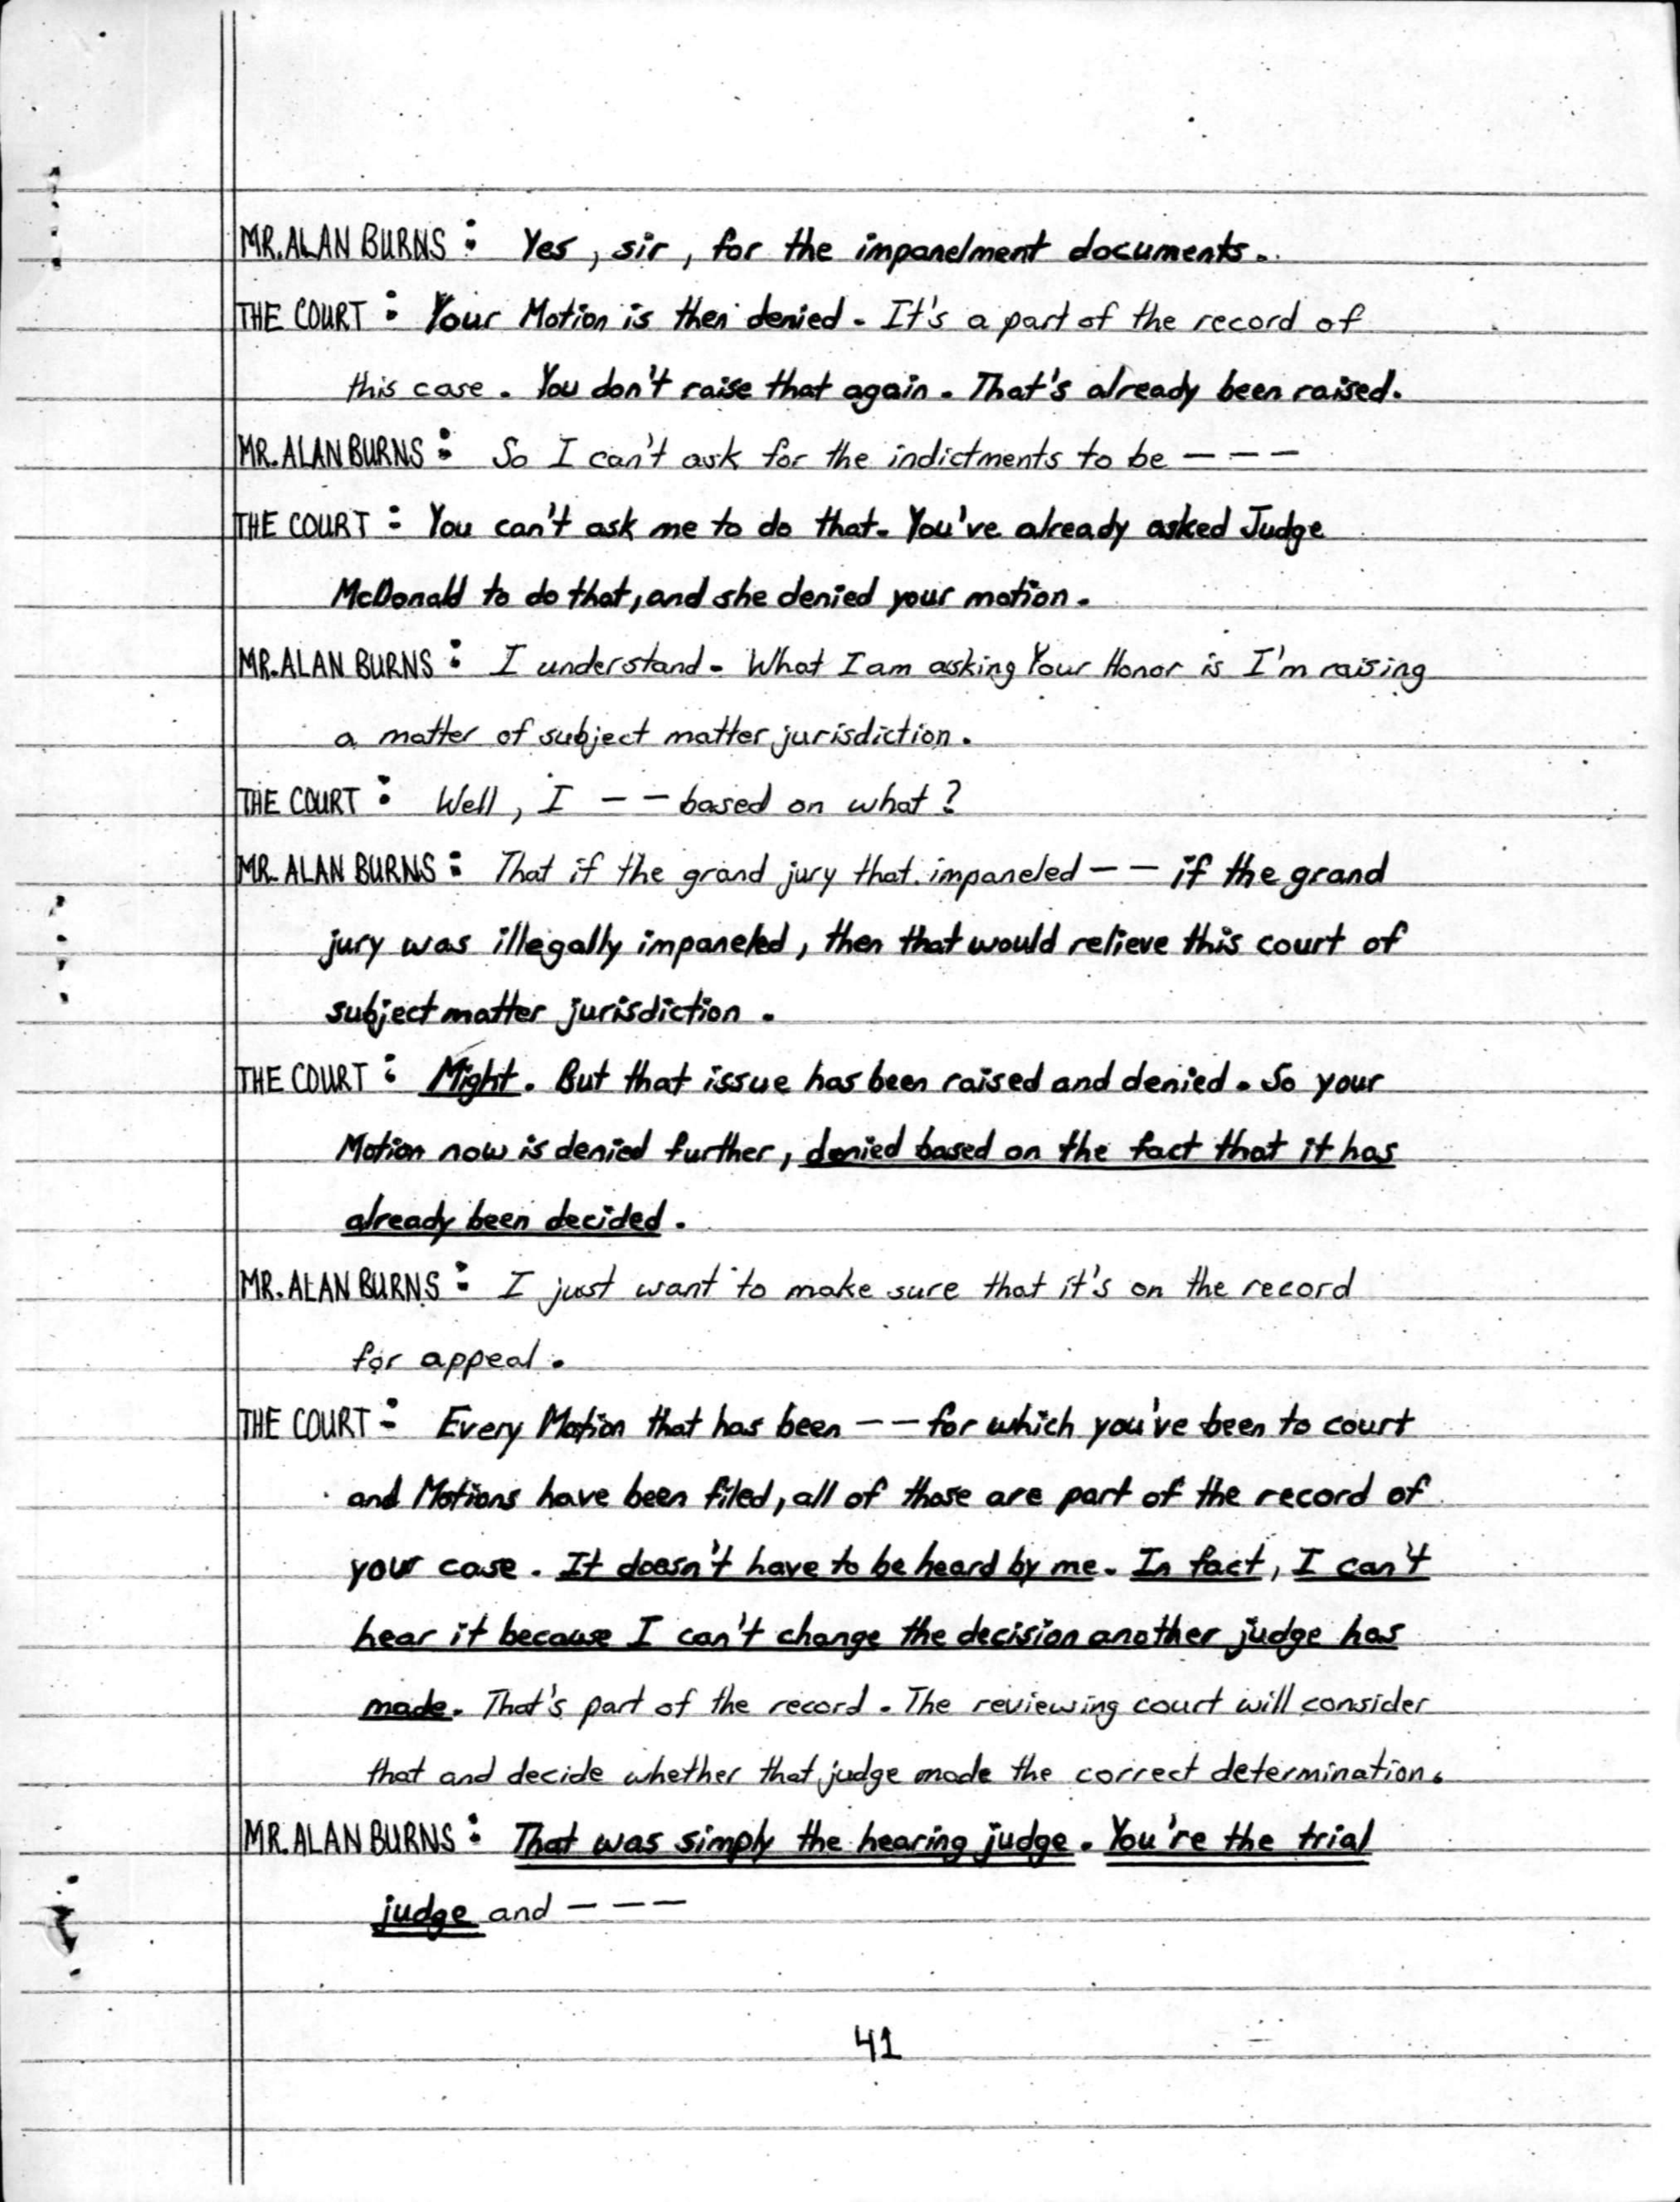 MR. ALAN BURNS: Yes, sir, for the impanelment documents.
THE COURT: Your Motion is then denied. It's a part of the record of
this case. You don't raise that again. That's already been raised.
MR. ALAN BURNS: So I can't ask for the indictments to be ---
THE COURT: You can't ask me to do that. You've already asked Judge
McDonald to do that, and she denied your motion.
MR. ALAN BURNS: I understand. What I am asking Your Honor is I'm raising
a matter of subject matter jurisdiction.
THE COURT: Well, I -- based on what?
MR. ALAN BURNS: That if the grand jury that impaneled -- if the grand
jury was illegally impaneled, then that would relieve this court of
subject matter jurisdiction.
THE COURT: Might. But that issue has been raised and denied. So your
Motion now is denied further, denied based on the fact that it has
already been decided.
MR. ALAN BURNS: I just want to make sure that it's on the record
for appeal.
THE COURT: Every Motion that has been -- for which you've been to court
and Motions have been filed, all of those are part of the record of
your case. It doesn't have to be heard by me. In fact, I can't
hear it because I can't change the decision another judge has
made. That's part of the record. The reviewing court will consider
that and decide whether that judge made the correct determination.
MR. ALAN BURNS: That was simply the hearing judge. You're the trial
judge and ---
41